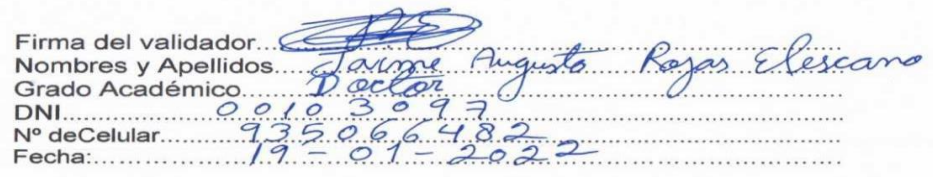 Firma del validador
Nombres y Apellidos Jaime Augusto Rojas Elescano
Grado Académico Doctor
DNI 00103097
Nº deCelular 935066482
Fecha: 19-01-2022